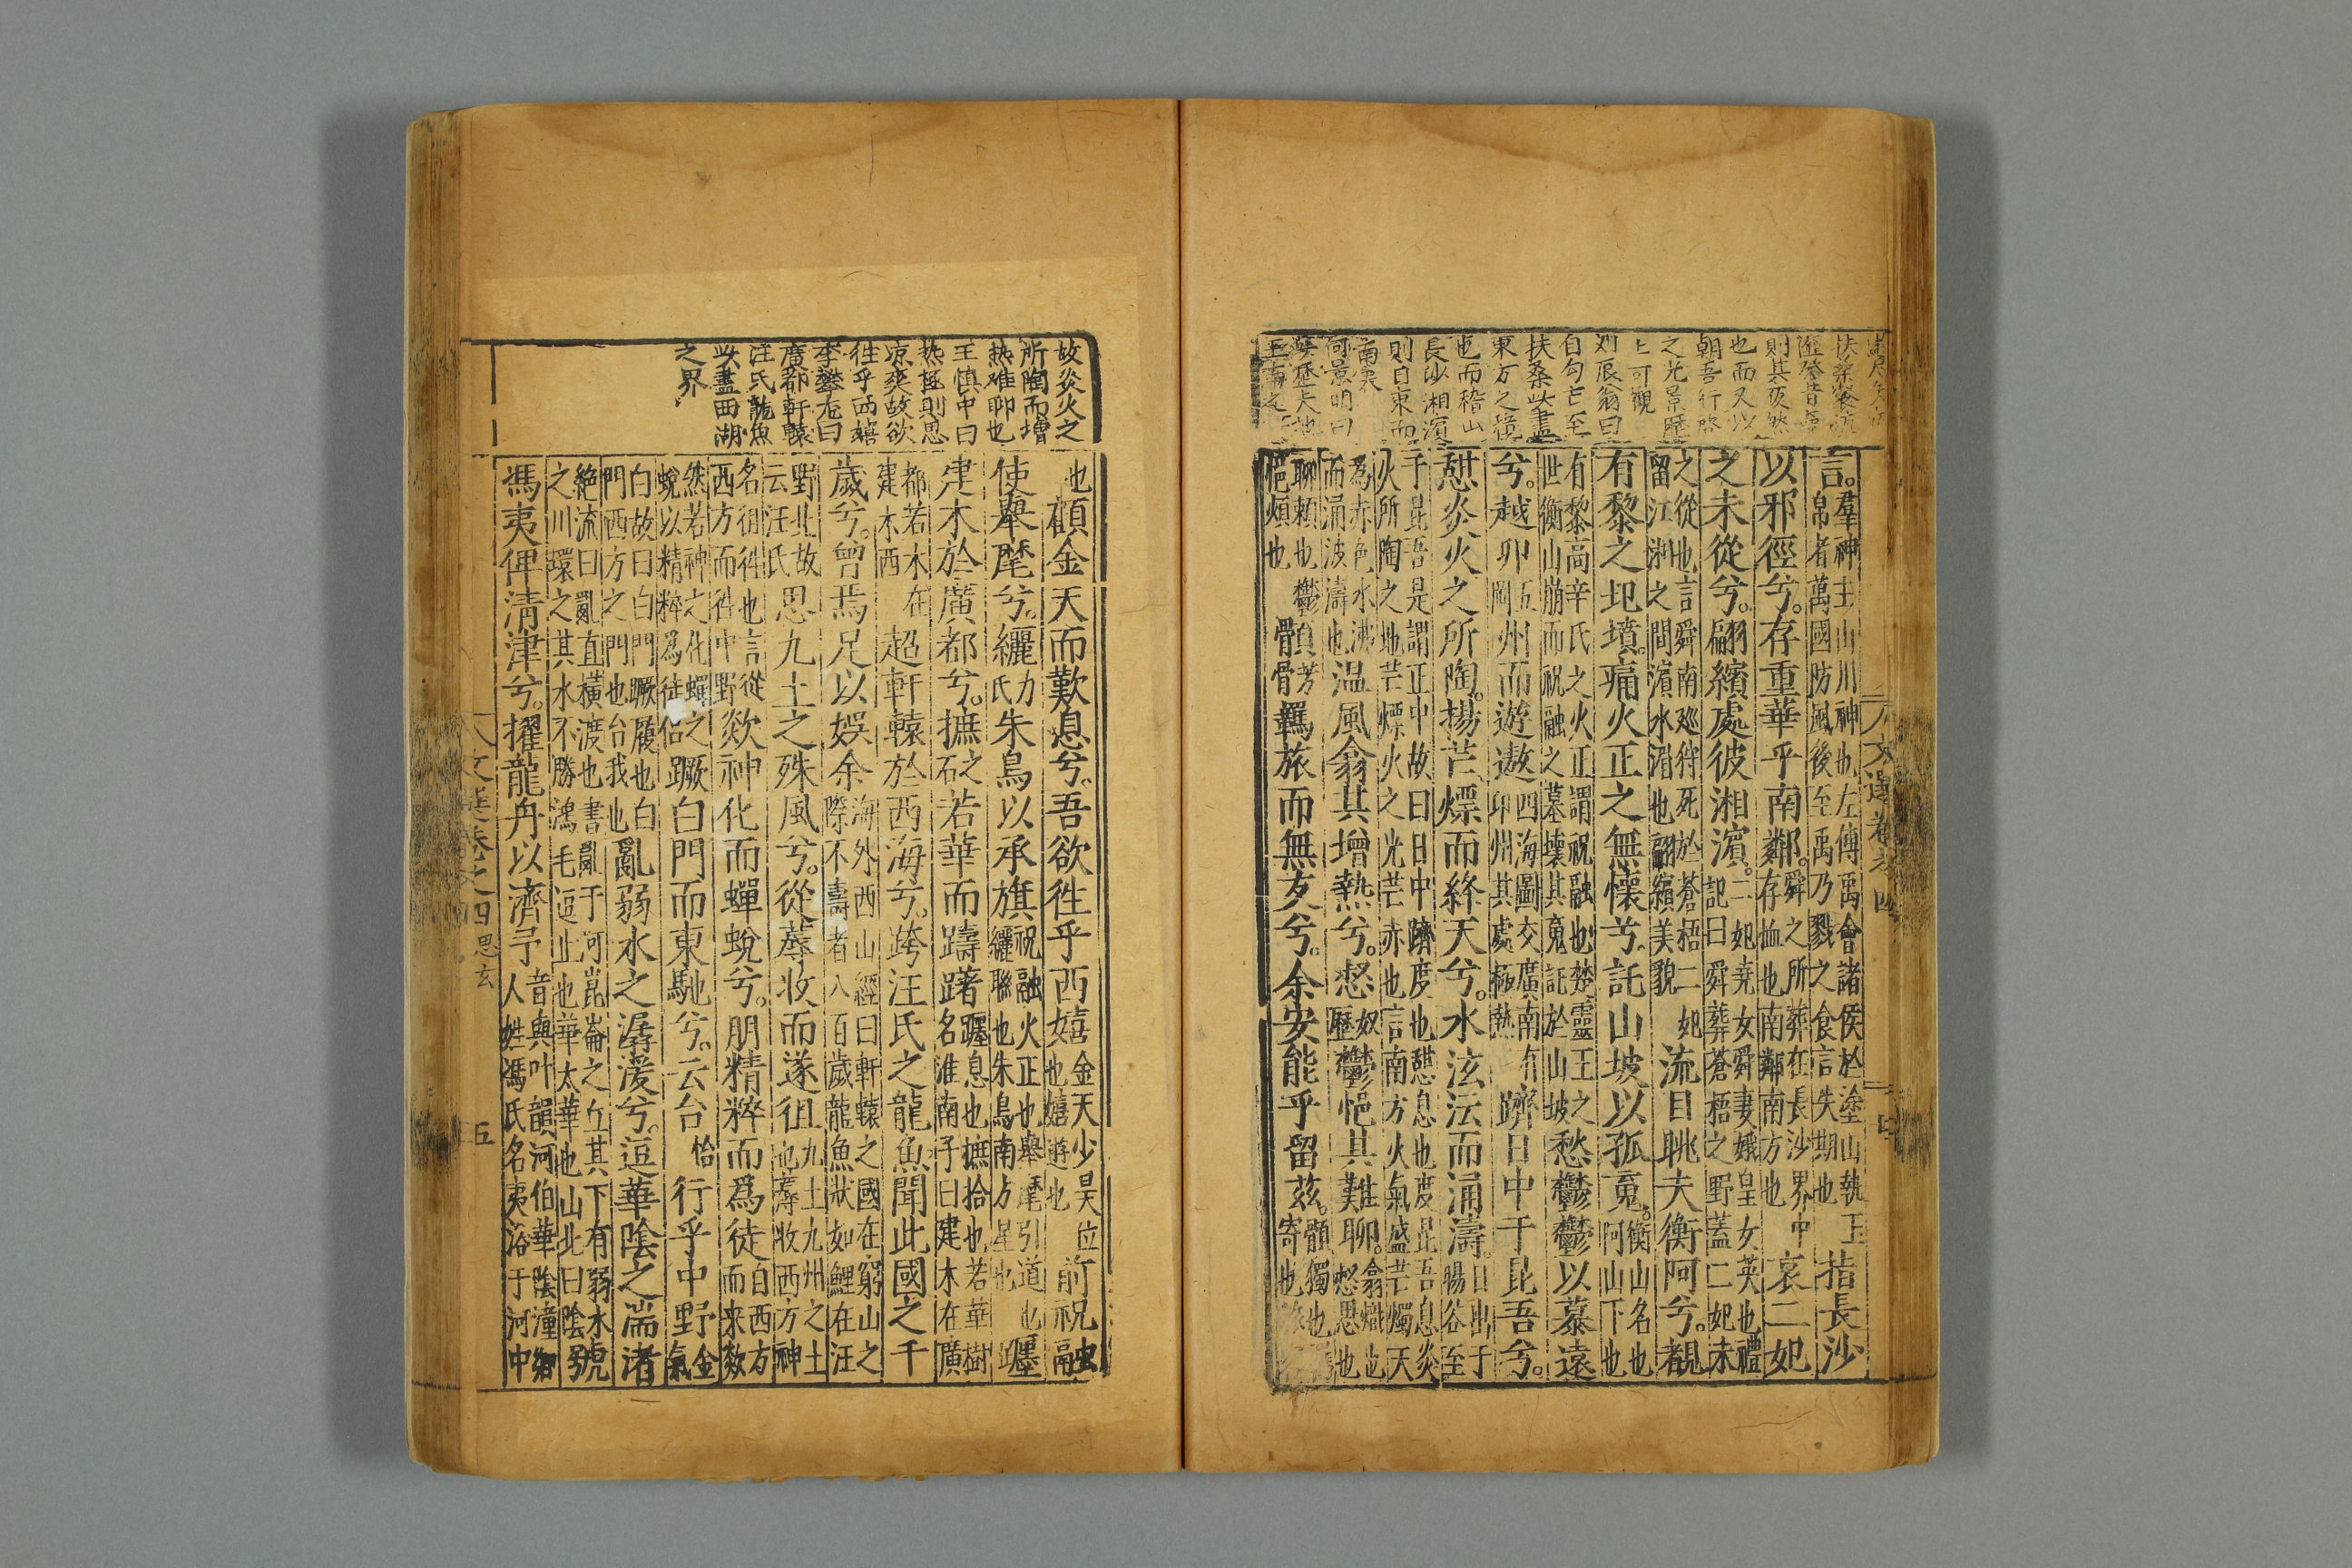 扶桑
則其
也而又以
朝吾行
之光景歷
上可觀
刘辰翁曰
自勾芒至
扶桑此盡
東方之境
也而稽山
長沙湘濱
則自東而
南矣
言。羣神主山川神也左傳禹會諸侯於塗山執玉
帛者萬國防風後至禹乃戮之食言失期也指長沙
以邪徑兮。存重華乎南鄰。舜之所葬在長沙界中
存恤也南鄰南方也哀二妃
之未從兮。翩繽處彼湘濱。二妃堯女舜妻娥皇女英也禮
記曰舜葬蒼梧之野蓋二妃未
之從也言舜南廵狩死於蒼梧二妃
留江湘之間濱水湄也翩繽美貌流目眺夫衡阿兮。覩
有黎之圯墳。痛火正之無懷兮。託山坡以孤䰟。衡山名也
阿山下也
有黎高辛氏之火正謂祝融也楚靈王之
世衡山崩而祝融之墓壞其䰟託於山坡愁鬱鬱以慕遠
兮。越卬五剛州而遊遨四海圖交廣南有
卬州其處極熱躋日中于昆吾兮。
憇炎火之所陶。揚芒熛而絳天兮。水泫沄而涌濤。日出于
暘谷至
于昆吾是謂正中故曰日中躋度也憇息也度昆吾息炎
火所陶之地芒熛火之光芒赤也言南方火氣盛芒燭天
為赤色水沸
而涌波濤也温風翕其增熱兮。惄奴歷鬱悒其難聊。翕熾也
惄思也
聊賴也鬱
悒煩也顝骨羈旅而無友兮。余安能乎留茲。顝獨也
寄也
文選卷之四
故炎火之
所陶而增
熱难聊也
王慎中曰
熱極則思
凉爽故欲
徃乎西嬉
李攀龙曰
廣都軒轅
汪氏龍魚
此盡西湖
之界
也顧金天而歎息兮。吾欲徃乎西嬉金天少昊位
也嬉遊也前祝融
使舉麾兮。纚力氏朱鳥以承旗祝融火正也舉麾引道也
纚聯也朱鳥南方星也躔
建木於廣都兮。摭之石若華而躊躇躔息也摭拾也若華樹
名淮南子曰建木在廣
都若木在
建木西超軒轅於西海兮。跨汪氏之龍魚聞此國之千
歲兮。曾焉足以娛余海外西山經曰軒轅之國在窮山之
際不壽者八百歲龍魚狀如鯉在汪
野北故
云汪氏思九土之殊風兮。從蓐收而遂徂九土九州之土
也蓐收西方神
名徂徃也言從
西方而徃中野欻神化而蟬蛻兮。朋精粹而為徒白西方
而来欻
然若神之化蟬之
蛻以精粹為徒侣蹶白門而東馳兮。云台恰行乎中野金
氣
白故曰白門蹶履也白
門西方之門也台我也亂弱水之潺湲兮。逗華陰之湍渚
絶流曰亂直橫渡也書亂于河崑崙之丘其下有弱水
之川環之其水不勝鴻毛逗止也華太華也山北曰陰號
馮夷俾清津兮。櫂龍舟以濟予音與叶韻河伯華陰潼鄉
人姓馮氏名夷浴于河中
文選卷之四 思玄
五